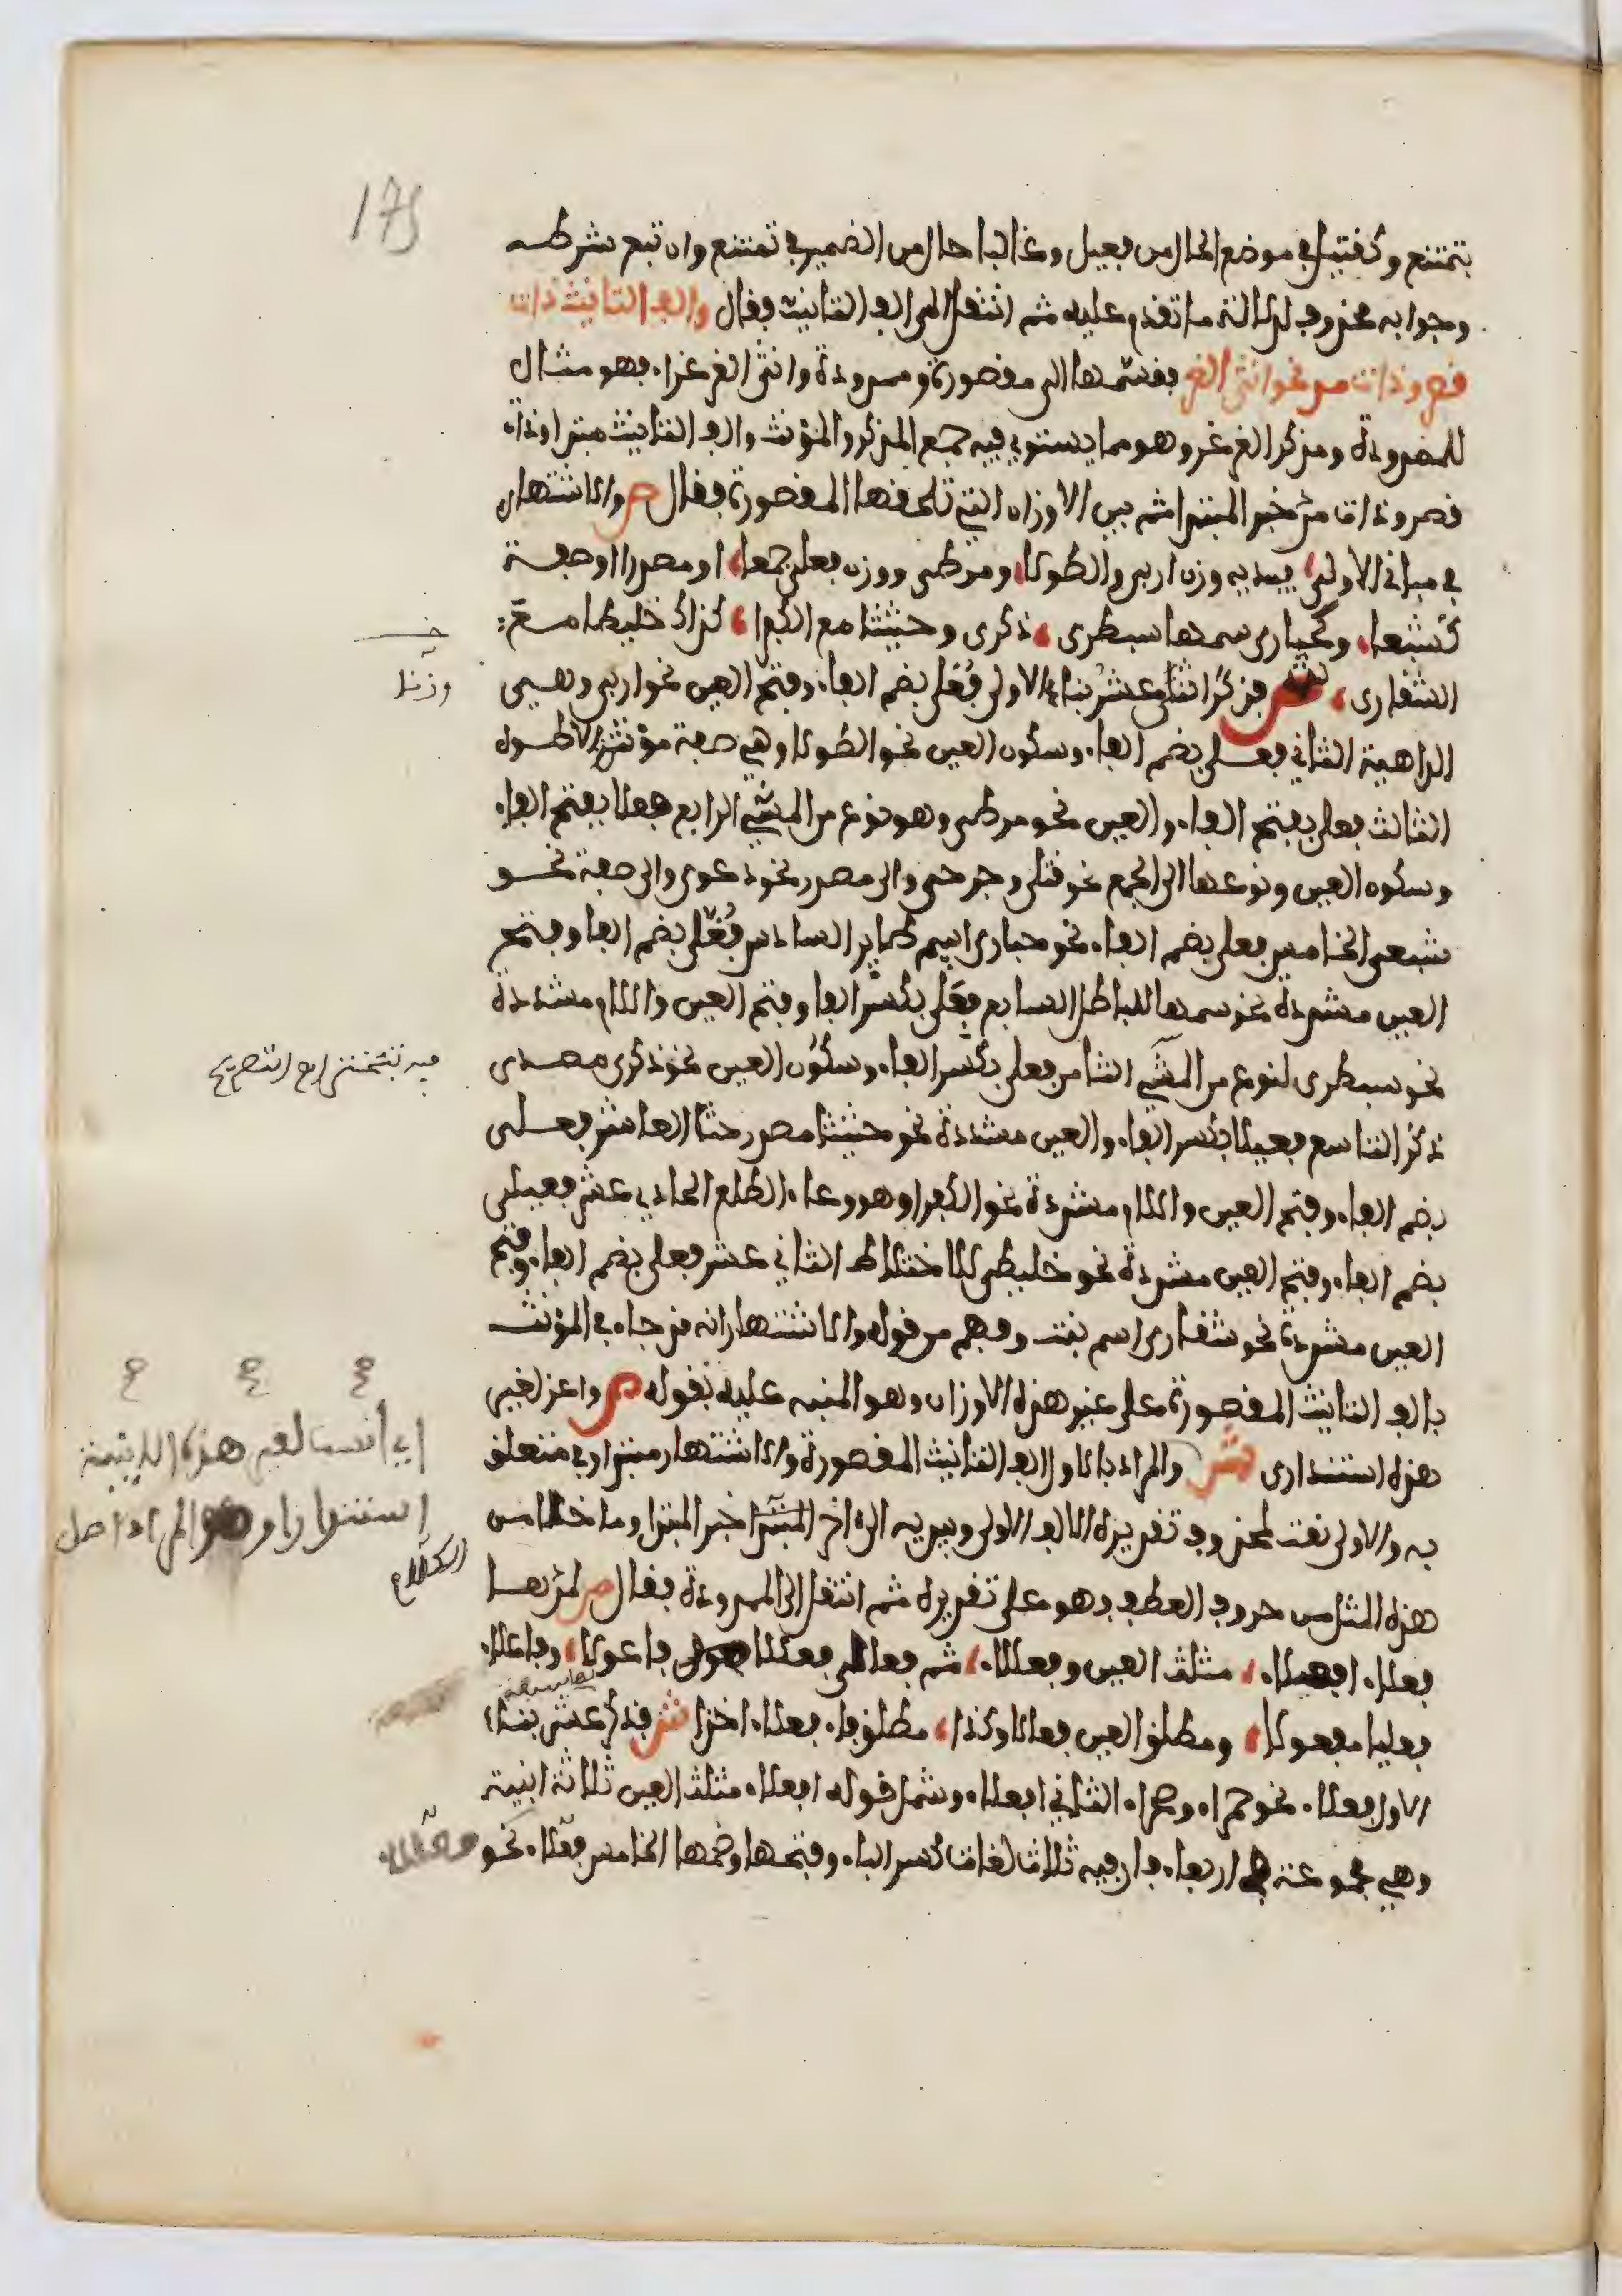 175
بتمتنع وكقتيل في موضع الحال من فعيل وغالبا حال من الضمير في تمتنع وان تبع شرطه
وجوابه محذوف لدلالة ما تقدم عليه ثم انتقل الى الف التانيث فقال والف التانيث ذات
قصر وذات مد نحو انثى الغر فقسمها الى مقصورة وممدودة وانثى الغر غراء فهو مثال
للممدودة ومذكر الغر اغر وهو مما يستوي فيه جمع المذكر والمؤنث والف التانيث مبتدا وذات
قصر وذات مد خبر المبتدا ثم بين الاوزان التي تلحقها المقصورة فقال ص والاشتهار
في مباني الاولى يبديه وزن اربى والطولى ومرطى ووزن فعلى جمعا او مصدرا او صفة
كشبعا وكحبارى سمها سبطرى ذكرى وحثيثا مع الكبرا كذاك خليطا مع:
خـ
وزنا
الشقارى ش فذكر اثنى عشر بناء الاولى فعلى بضم الفاء وفتح العين نحو اربى وهـي
الداهية الثاني فعلى بضم الفاء وسكون العين نحو الطولا وهي صفة مؤنث الاطـول
الثالث فعلى بفتح الفاء والعين نحو مرطى وهو نوع من المشي الرابع فعلا بفتح الفاء
وسكون العين ونوعها الى الجمع نحو قتلى وجرحى والى مصدر نحو دعوى والى صفة نحـو
شبعى الخامس فعلى بضم الفاء نحو حبارى اسم طاير السادس فعلى بضم الفا وفتح
العين مشددة نحو سمها للباطل السابع فعلى بكسر الفا وفتح العين واللام مشددة
نحو سبطرى لنوع من المشي الثامن فعلى بكسر الفاء وسكون العين نحو ذكرى مصـدر
فيه تبختر اهـ التصريح
ذكر التاسع فعيلا بكسر الفاء والعين مشددة نحو حثيثا مصدر حثا العاشر فعـلى
بضم الفاء وفتح العين واللام مشددة نحو الكفرا وهو وعاء الطلع الحادي عشر فعيلى
بضم الفاء وفتح العين مشددة نحو خليطى للاختلاط الثاني عشر فعلى بضم الفاء وفتح
العين مشددة نحو شقارى اسم نبت وفهم من قوله والاشتهار انه قد جاء في المؤنث
بالف التانيث المقصورة على غير هذه الاوزان وهو المنبه عليه بقوله ص واعز لغير
هذه استندارى ش والمراد بالاولى الف التانيث المقصورة والاشتهار مبتدا وفي متعلق
اي انسب لغير هذه الابنية
استندارا وهو المراد اصل
الكلام
به والاولى نعت لمحذوف تقديره الالف الاولى ويبديه الى اخر المبتدا خبر المبتدا وما خلا من
هذه المثل من حروف العطف فهو على تقديره ثم انتقل الى الممدودة فقال ص لمدهـا
فعلاء افعلاء مثلث العين وفعللاء ثم فعالا فعللا فاعولا وفاعلاء
فعليا مفعولا ومطلق العين فعالا وكذا مطلق فاء فعلاء اخذا ش فذكر سبعة عشر بناء
الاول فعلاء نحو حمراء وصحراء الثاني افعلاء وشمل قوله افعلاء مثلث العين ثلاثة ابنية
وهي مجموعة في اربعاء فان فيه ثلاث لغات كسر الباء وفتحها وضمها الخامس فعللاء نحو